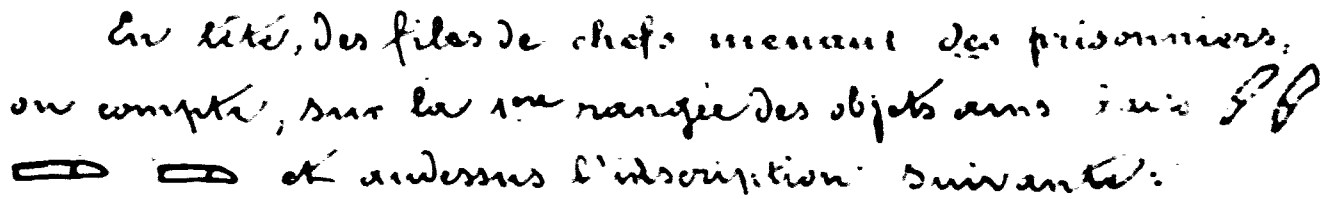 En tête, des files de chefs menant des prisonniers,
on compte, sur la 1ere rangée des objets ainsi faits
et audessus l'inscription suivante: